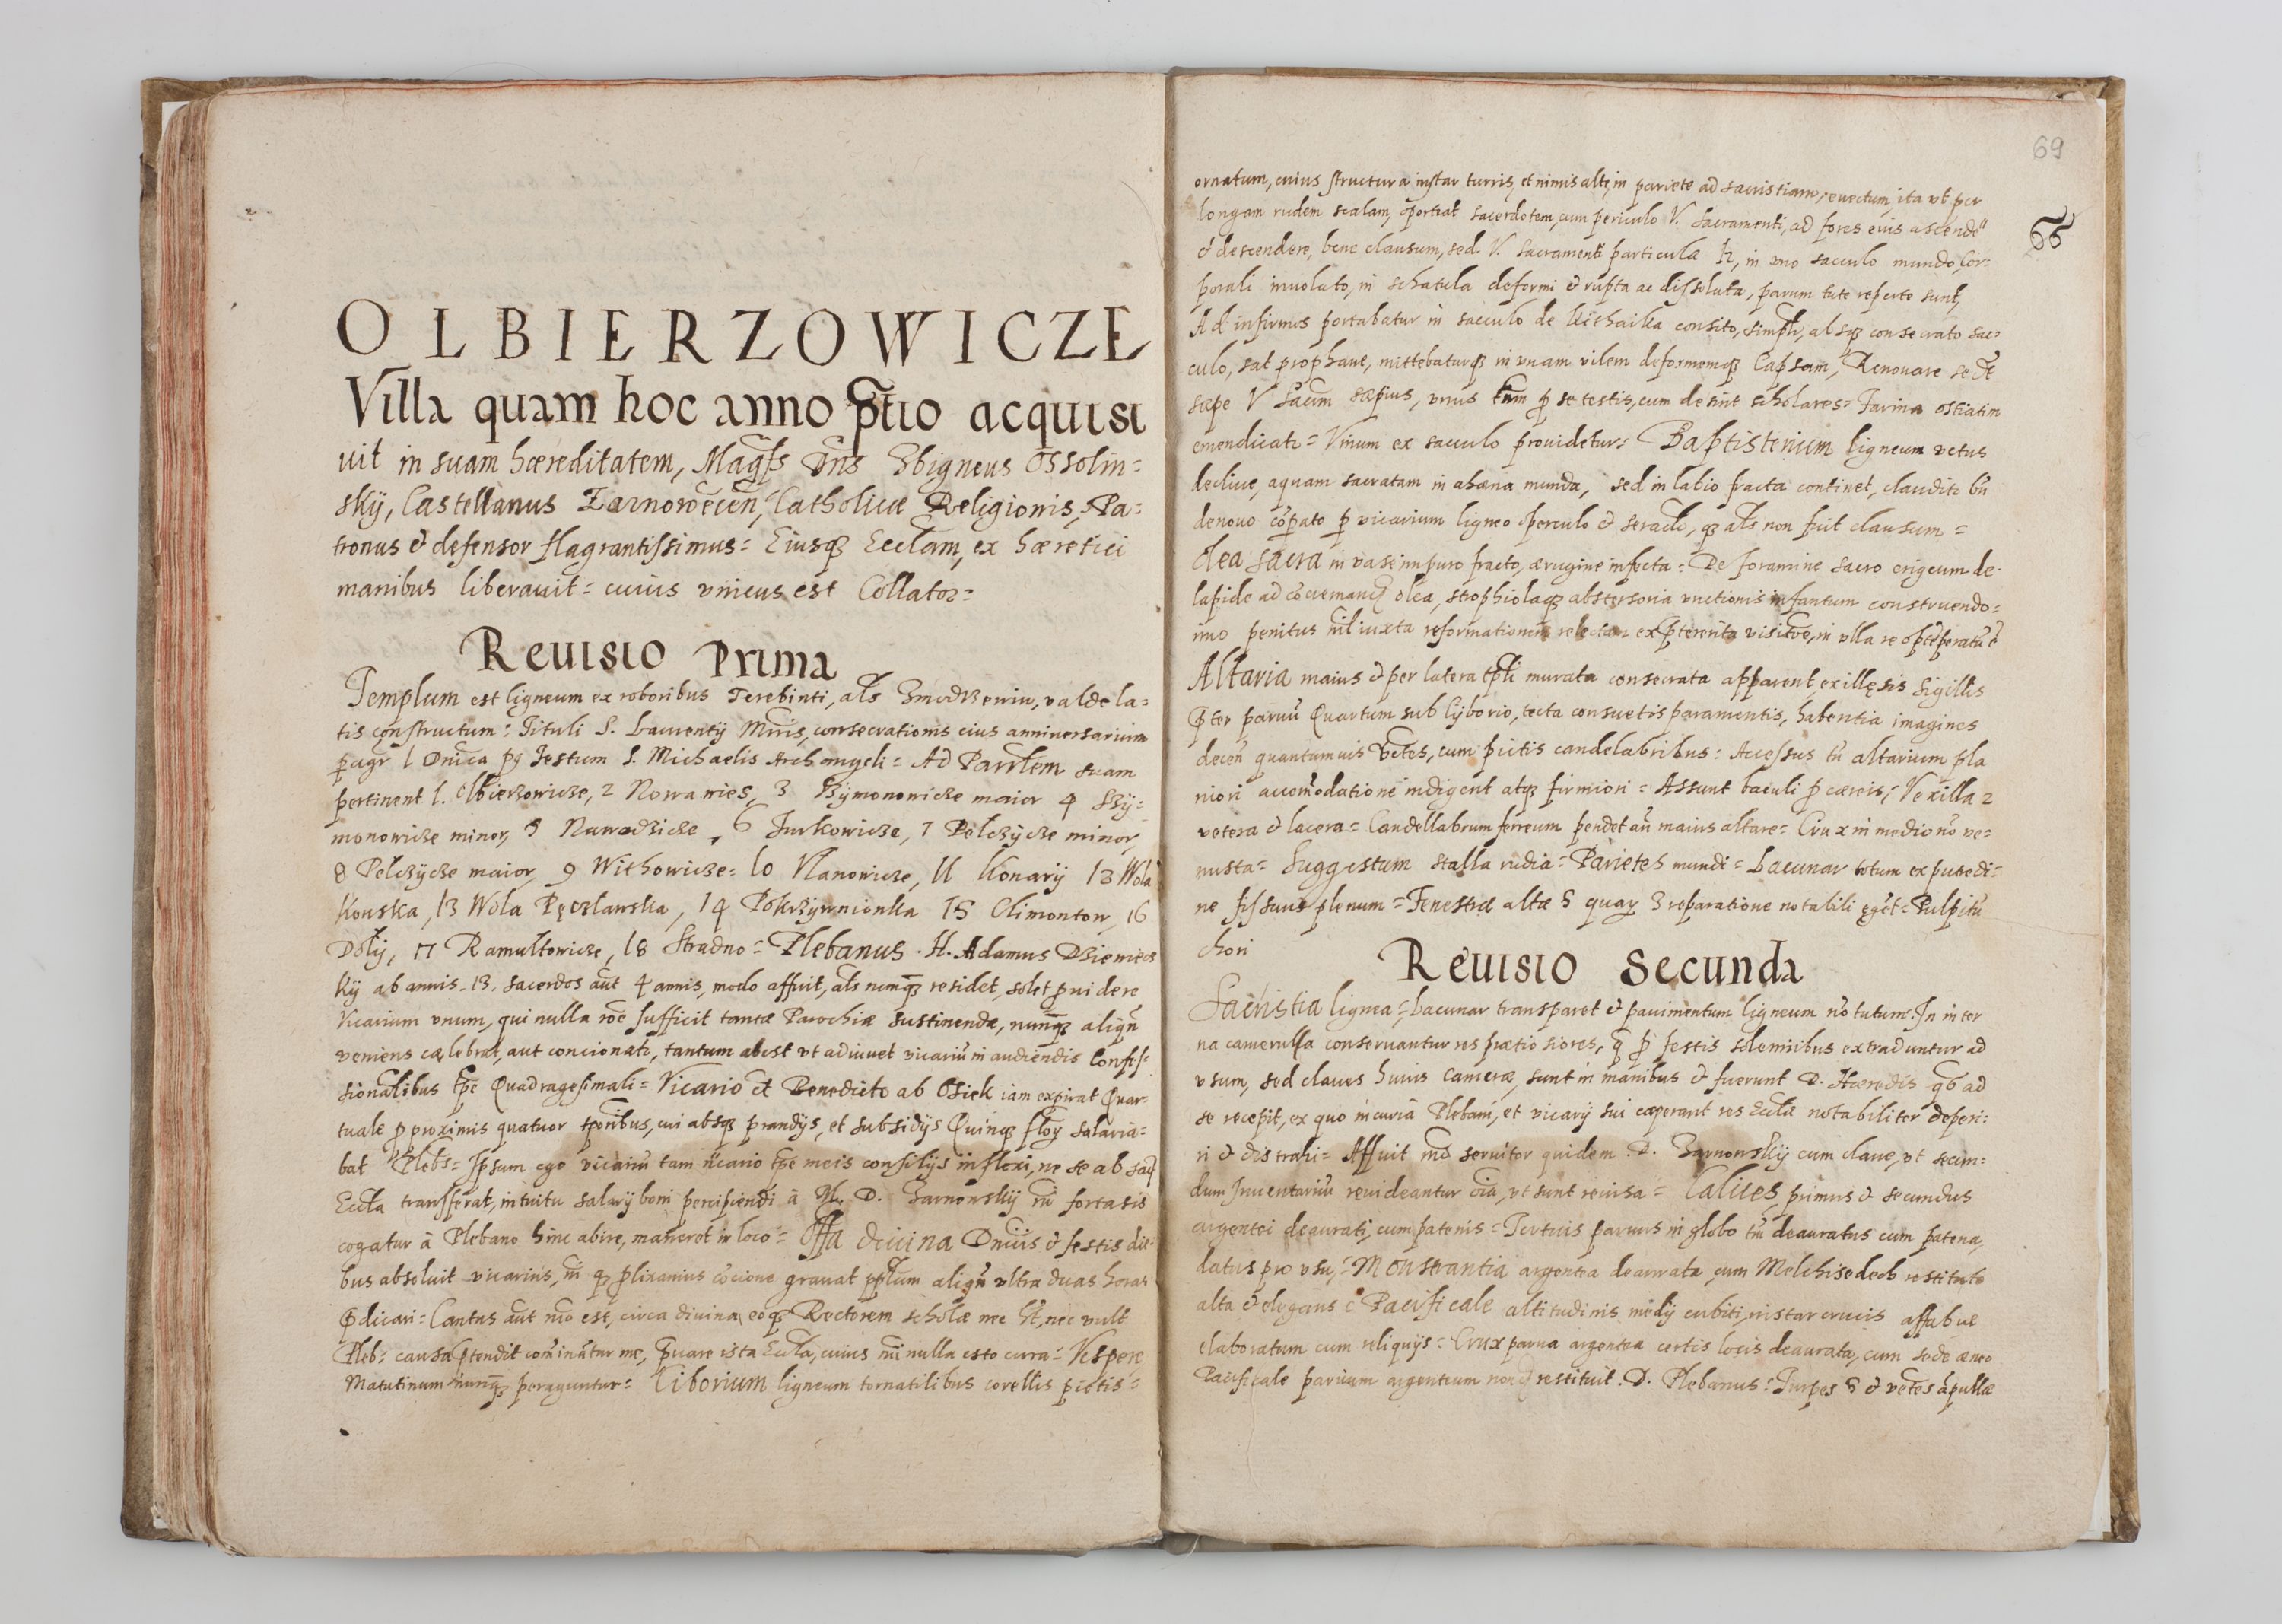 OLBIERZOWICZE
Villa quam hoc anno pñtio acquisi
uit in suam hæreditatem, Magfs Dñs Zbigneus Ossolin=
skÿ, Castellanus Zarnowecen, Catholicæ Religionis, Pa=
tronus & defensor flagrantissimus= Eiusq̃ Ecclam, ex hæretici
manibus liberauit= cuius vnicus est Collator=
Reuisio Prima
Templum est ligneum ex roboribus Terebinti, als Zmodrzeniu, valde la=
tis constructum: Tituli S. Laurentÿ Mris, consecrationis eius anniuersarium
pagr 1 Dnica pq festum S. Michaelis Archangeli= Ad Parrlem suam
pertinent 1. Olbierzowicze, 2 Nowawies, 3 Szymonowicze maior 4 Szÿ=
monowicze minor, 5 Nawodzicze, 6 Jurkowicze, 7 Pelczÿcze minor,
8 Pelczÿcze maior, 9 Withowicze= 10 Vlanowicze, 11 Konarÿ 12 Wola
Konska, 13 Wola Pęczlawska, 14 Pokrzÿwnionka 15 Climontow, 16
Dolÿ, 17 Ramultowicze, 18 Stradno= Plebanus. H. Adamus Dzieniecs
kÿ ab annis. 13. sacerdos aũt 4 annis, modo affuit, als nunq̃ residet, solet puidere
Vicarium vnum, qui nulla roe sufficit tantæ Parochiæ sustinendæ, nunq̃ aliqñ
veniens cælebrat, aut concionatr, tantum abest vt adiuuet vicariũ in audiendis Confes=
sionalibus tpe Quadragesimali= Vicario et Benedicto ab Osiek iam expirat Quar=
tuale p proximis quatuor tporibus, cui absq̃ prandÿs, et subsidÿs Quinq̃ flor salaria=
bat Plebs= Ipsum ego vicariũ tam ricario tpe meis consilÿs inflexi, ne se ab hac
Eccla transferat, intuitu salarÿ boni percipiendi à M. D. Zarnowskÿ ni fortasis
cogatur à Plebano hinc abire, maneret in loco= Offa diuina Dnicis & festis die=
bus absoluit vicarius, ni q̃ plixanius cõcione grauat pplum aliqñ vltra duas horas
pdicari= Cantus aũt nõ est, circa diuina, eoq̃ Rectorem scholæ nec ht, nec vult
Pleb: causa ptendit cominatur me, priuare ista Eccla, cuius mi nulla esto curra= Vespere
Matutinum nunq̃ peraguntur= Ciborium ligneum tornatilibus corellis pictis=
69
66
ornatum, cuius structura instar turris, et nimis alte, in pariete ad sacristiam, euectum, ita vt per
longam rudem scalam, oporteat sacerdotem, cum periculo V. Sacramenti, ad fores eius ascende
& descendere, bene clausum, sed V. Sacramenti particula 12, in vno sacculo mundo, Cor=
porali inuoluto, in schatula deformi & rupta ac dissoluta, parum tute reperte sunt,
Ad infirmos portabatur in sacculo de Kithaika consito, simplr, absq̃ consecrato sac=
culo, sat prophane, mittebaturq̃ in vnam vilem deformemq̃ Capsam, Renouare se
sæpe V Sacm sæpius, vnus tñm p se testis, cum desint scholares= Farina ostiatim
emendicatr= Vinum ex sacculo prouidetur: Baptisterium ligneum vetus
decliue, aquam sacratam in ahæna munda, sed in labio fracta continet, clauditr bñ
denouo cõparato p vicarium ligneo operculo & seraclo, q̃ als non fuit clausum=
Olea sacra in vase impuro fracto, ærugine infecta= De foramine sacro erigeum de=
lapide ad cõcremanda olea, strophiolaq̃ abstersoria vnctionis infantum construendo=
imo penitus nil iuxta reformationem relictam ex pterita visitoe, in vlla re obtẽperatũ e
Altaria maius & per latera tpli murata consecrata apparent, ex illęsis sigillis
pter paruũ Quartum sub Cyborio, tecta consuetis paramentis, habentia imagines
decen quantumuis vetes, cum pictis candelabribus: Accessus tñ altarium pla
niori accomodatione indigent atq̃ firmiori= Assunt baculi p cæreis, Vexilla 2
vetera & lacera= Candellabrum ferreum pendet añ maius altare= Crux in medio nõ ve=
nusta= Suggestum stalla rudia= Parietes mundi= Lacunar totum ex putredi=
ne fissuris plenum= Fenestræ altæ 5 quar 3 reparatione notabili eget= Pulpitũ
chori
Reuisio Secunda
Sacristia lignea= Lacunar transparet & pauimentum ligneum nõ tutum. In inter
na camerulla conseruantur res prætiosiores, q̃ p festis solemnibus extraduntur ad
vsum, sed claues huius cameræ, sunt in manibus & fuerunt D. Hæredis qd ad
se recepit, ex quo incuriâ Plebani, et vicarÿ sui cæperant res Ecclæ notabiliter deperi=
ri & distrahi= Affuit mõ seruitor quidem D. Zarnowskÿ cum claue, vt secun=
dum Inuentariũ reuideantur oia, vt sunt reuisa= Calices, primus & secundus
argentei deaurati, cum patenis= Tertius paruus in globo tñ deauratus cum patena,
datus pro vsu= Monstrantia argentea deaurata, cum Melchisedech restituta
alta & elegans e Pacificale altitudinis medÿ cubiti, instar crucis affabræ
elaboratum cum reliquÿs= Crux parua argentea certis locis deaurata, cum sede æneo
Pacificale paruum argenteum nondum restituit. D. Plebanus: Turpes 5 & vetes ãpullæ